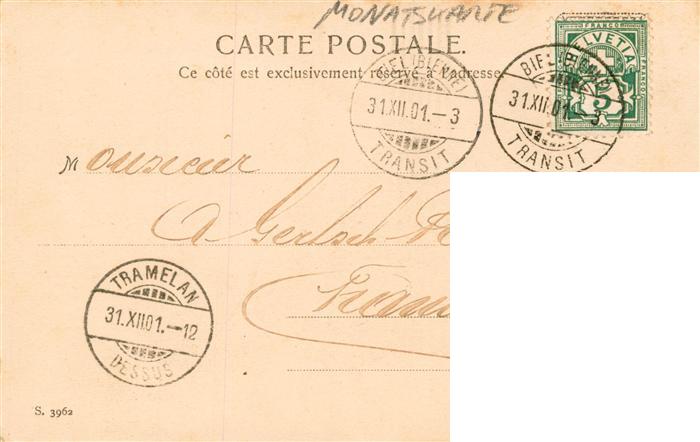 MONATSKARTE
CARTE POSTALE.
Ce côté est exclusivement réservé à l'adresse
FRANCO
HELVETIA
FRANCO
5
BIEL (BIENNE)
31.XII.01.–3
TRANSIT
BIEL (BIENNE)
31.XII.01.–3
TRANSIT
Monsieur
A Gertsch
Tram
TRAMELAN
31.XII.01.–12
DESSUS
S. 3962